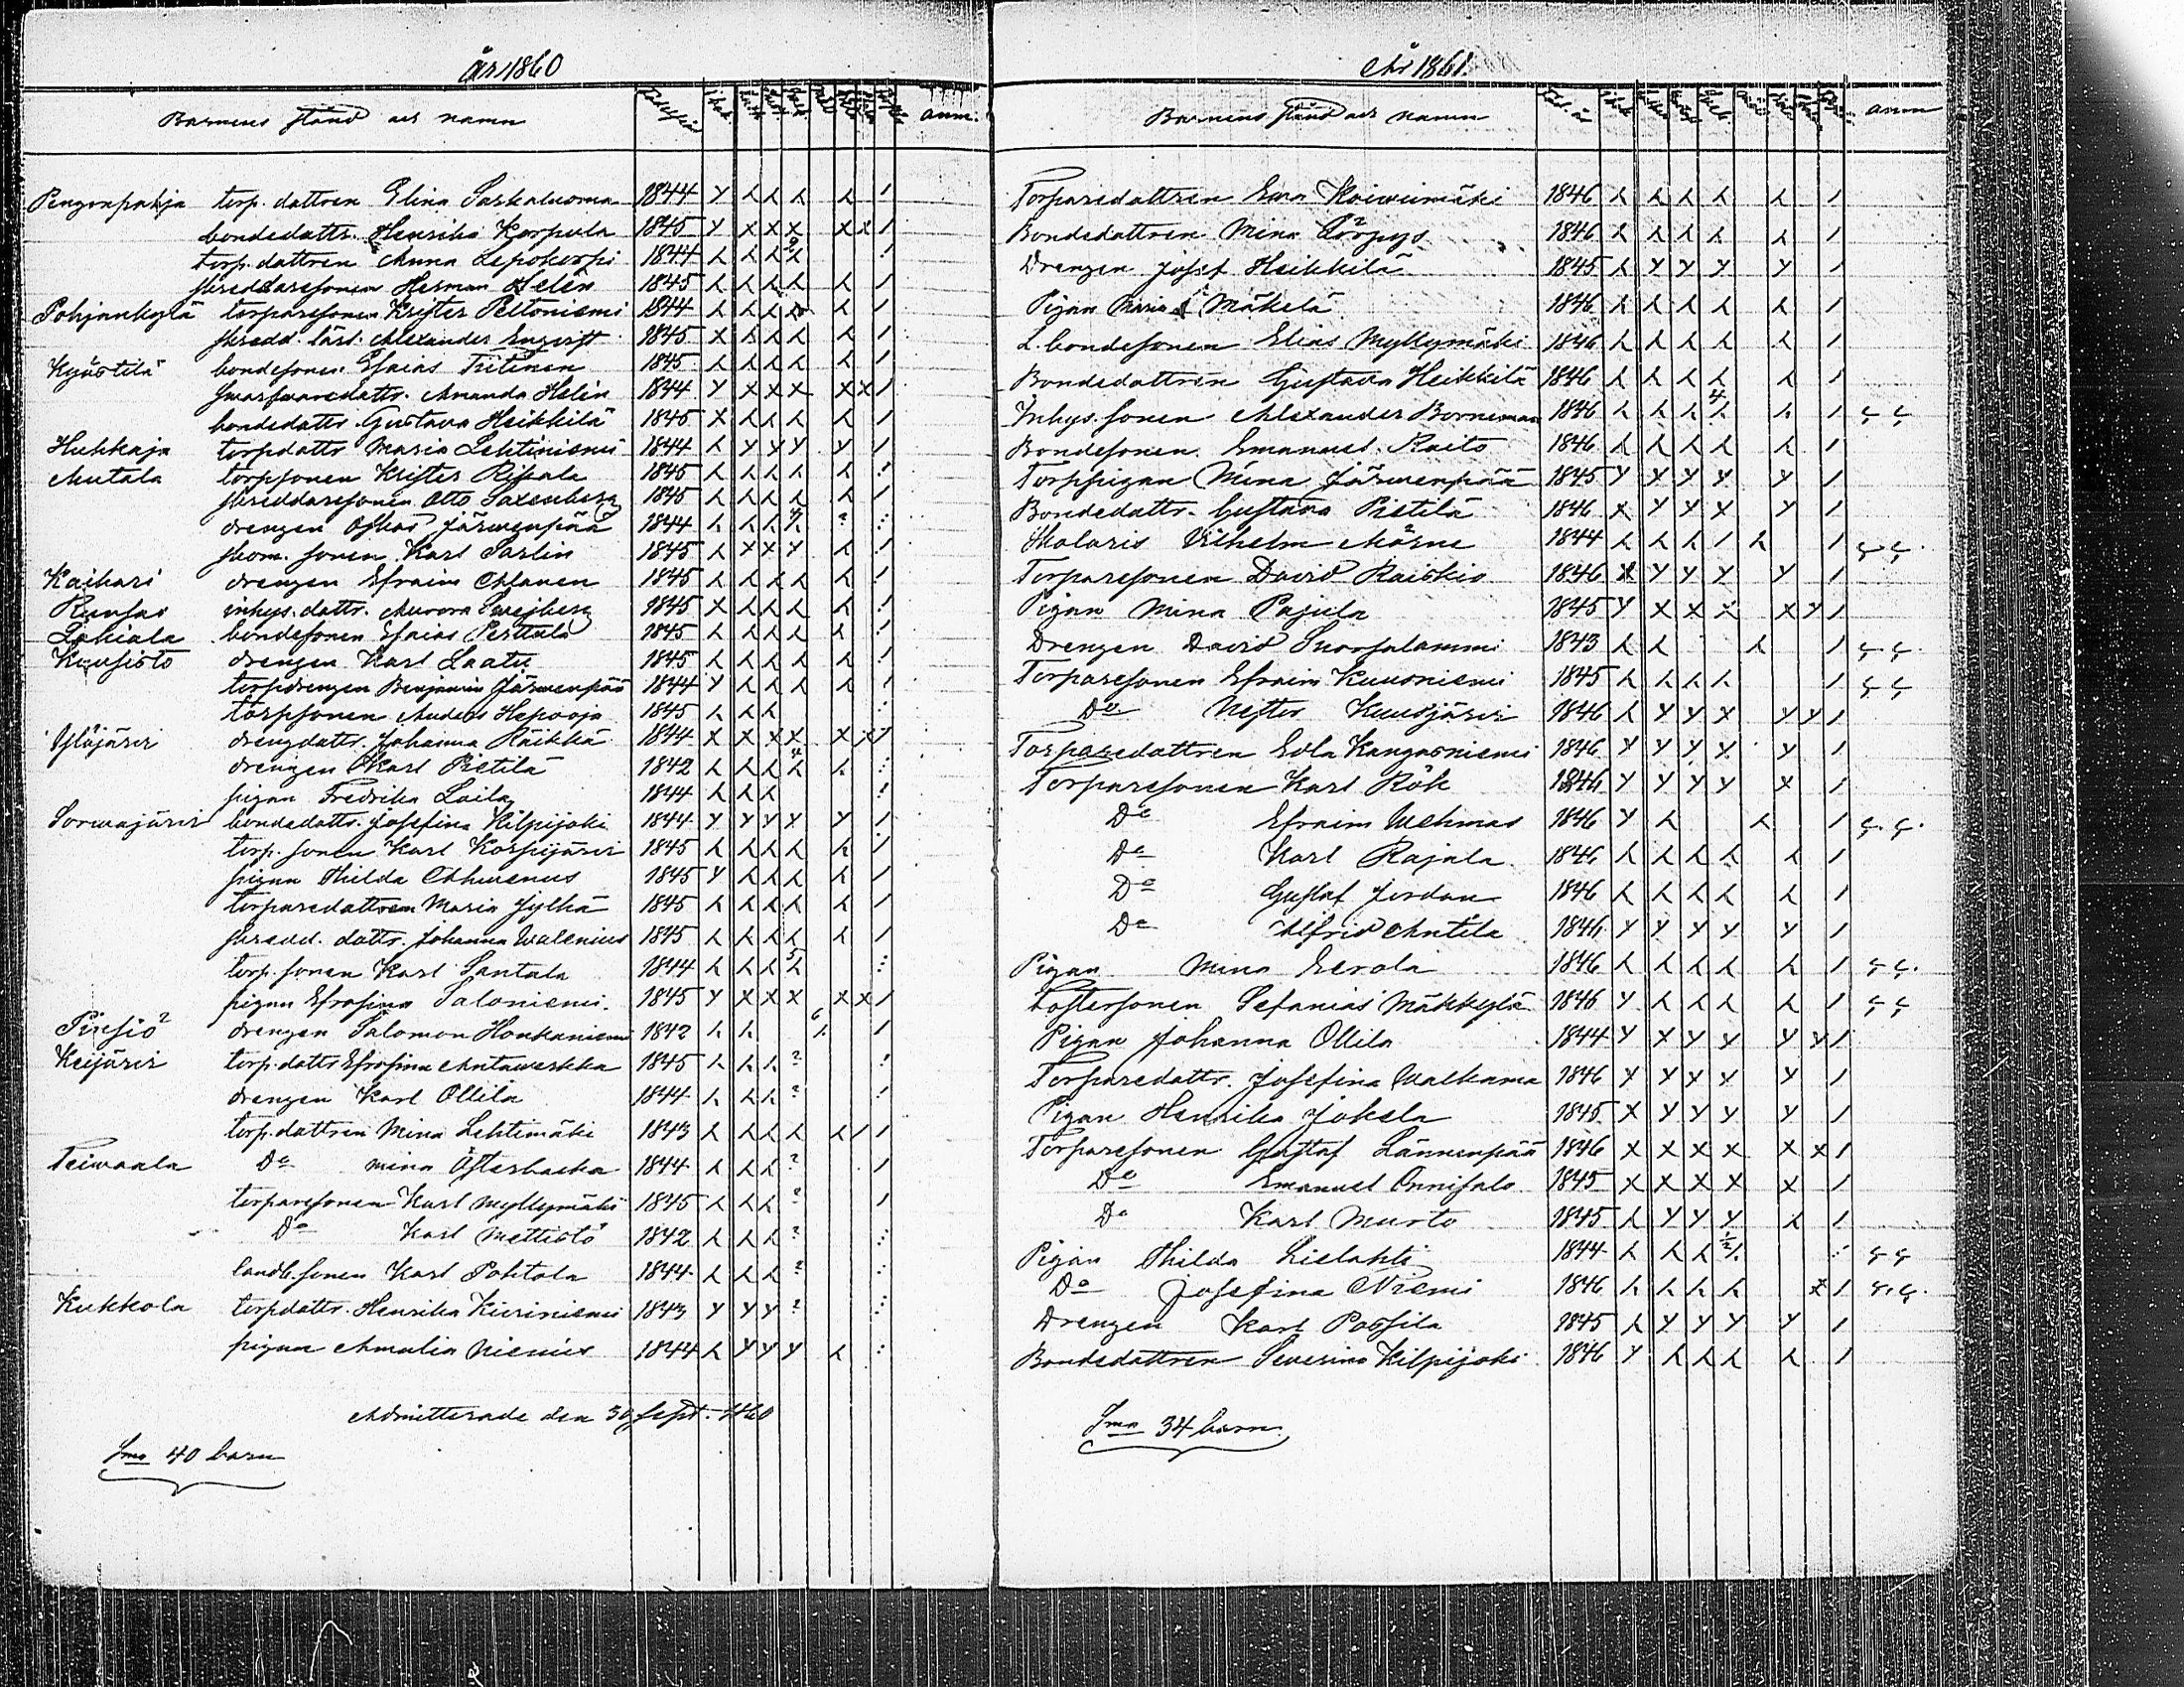 år 1860
Barnens stånd och namn anm.
Pengonpohja torp. dottren Elina Saskaluoma 1844
bondedottr. Henrika Korpula 1845
torp. dottren Anna Lepokorpi 1844
skreddaresonen Herman Helén 1845
Pohjankylä torparesonen Krister Peltoniemi 1844
skredd. lärl. Alexander Engvist 1845
Kyöstilä bondesonen Esaias Tiitinen 1845
Amanda Helin 1844
bondedottr. Gustava Heikkilä 1845
Huhkaja torpdottr Maria Lehtiniemi 1844
Antala torpsonen Krister Ripala 1845
skreddaresonen Otto Saxenberg 1845
drengen Oskar Järwenpää 1844
skom. sonen Karl Sarlin 1845
Kaihari drengen Efraim Ohlanen 1845
Runsas inhys. dottr. Aurora Sweiberg 1845
Lakiala bondesonen Esaias Perttula 1845
Kuusisto drengen Karl Laatu 1845
torpdrengen Benjamin Järwenpää 1844
torpsonen Anders Hepooja 1845
Ylöjärvi drengdottr. Johanna Räikkä 1844
drengen Karl Pietilä 1842
pigan Fredrika Laila 1844
Sorwajärvi bondedottr. Josefina Kilpijoki 1844
torp. sonen Karl Korpijärvi 1845
pigan Hilda 1845
torparedottren Maria Jylhä 1845
skredd. dottr. Johanna Walenius 1845
torp. sonen Karl Santala 1844
pigan Efrosina Saloniemi 1845
Pinsiö drengen Salomon Honkaniemi 1842
Keijärvi torp. dottr Efrosina Antaweskka 1845
drengen Karl Ollila 1844
torp. dottren Mina Lehtimäki 1843
Teiwaala Do Mina Österbacka 1844
torparesonen Karl Myllymäki 1845
Do Karl Mettistö 1842
landb. sonen Karl Pohtola 1844
Kukkola torpdottr. Henrika Kieriniemi 1843
pigan Amalia Niemis 1844
Admitterade den 30 sept. 1860
Sma 40 barn
År 1861.
Barnens stånd och namn anm
Torparedottren Eva Koiwumäki 1846
Bondedottren Mina Pörpys 1846
Drengen Josef Heikkilä 1845
Pigan Maria Mäkelä 1846
L. bondesonen Elias Myllymäki 1846
Bondedottren Gustava Heikkilä 1846
Inhys. sonen Alexander Borneman 1846
Bondesonen Emanuel Raito 1846
Torppigan Mina Järwenpää 1845
Bondedottr. Gustava Pietilä 1846
Skolaris Vilhelm Mörne 1844
Torparesonen David Raiskio 1846
Pigan Mina Pajula 1845
Drengen David Suorsalammi 1843
Torparesonen Efraim Kuusniemi 1845
Do Nestor Kuusjärvi 1846
Torparedottren Edla Kangasniemi 1846
Torparesonen Karl Rök 1846
Do Efraim Wehmas 1846
Do Karl Rajala 1846
Do Gustaf Jordan 1846
Do Alfrid Antila 1846
Pigan Mina Eerola 1846
Fostersonen Sefanias Mäkkylä 1846
Pigan Johanna Ollila 1844
Torparedottr. Josefina Walkama 1846
Pigan Henrika Jokela 1845
Torparesonen Gustaf Lännenpää 1846
Do Emanuel Onnisalo 1845
Do Karl Murto 1845
Pigan Hilda Lielahti 1844
Do Josefina Niemi 1846
Drengen Karl Passila 1845
Bondedottren Severina Kilpijoki 1846
Sma 34 barn